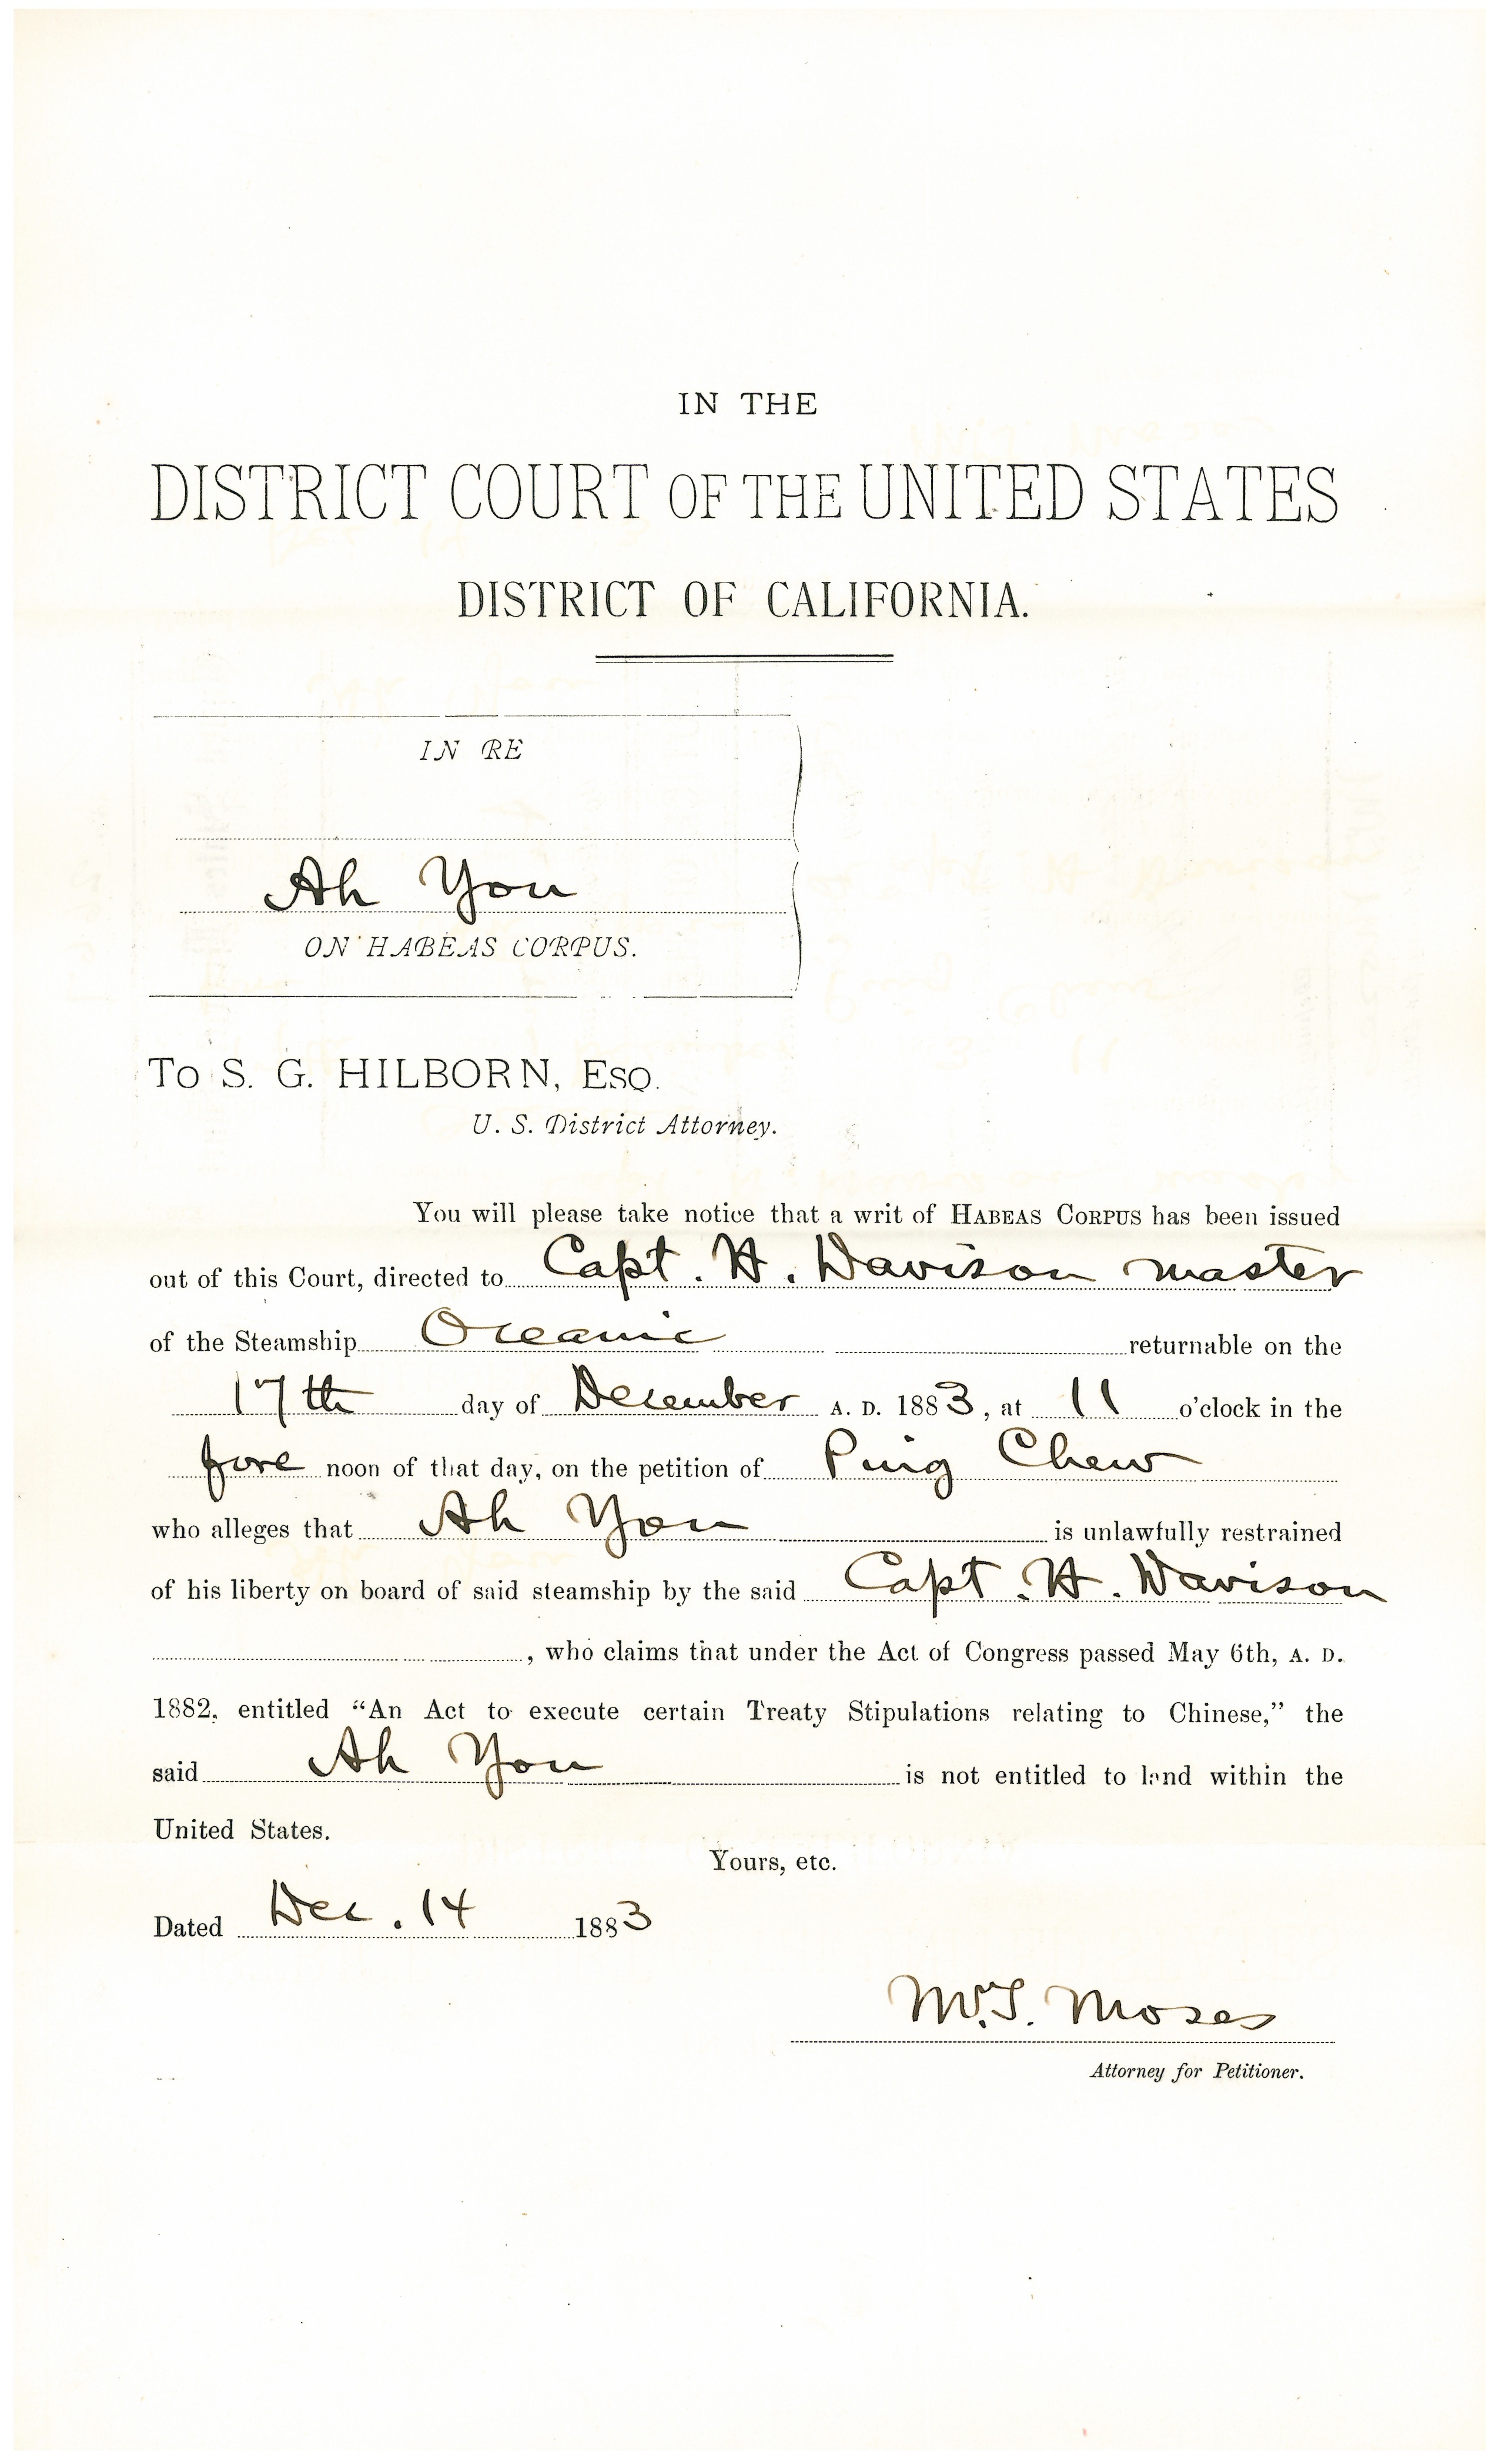 IN THE
DISTRICT COURT OF THE UNITED STATES
DISTRICT OF CALIFORNIA.
IN RE
Ah You
ON HABEAS CORPUS.
To S. G. HILBORN, Esq.
U. S. District Attorney.
You will please take notice that a writ of HABEAS CORPUS has been issued
out of this Court, directed to Capt. H. Davison master
of the Steamship Oceanic returnable on the
17th day of December A. D. 1883, at 11 o'clock in the
fore noon of that day, on the petition of Ping Chew
who alleges that Ah You is unlawfully restrained
of his liberty on board of said steamship by the said Capt. H. Davison
, who claims that under the Act of Congress passed May 6th, A. D.
1882, entitled “An Act to execute certain Treaty Stipulations relating to Chinese,” the
said Ah You is not entitled to land within the
United States.
Yours, etc.
Dated Dec. 14 1883
M. S. Moses
Attorney for Petitioner.